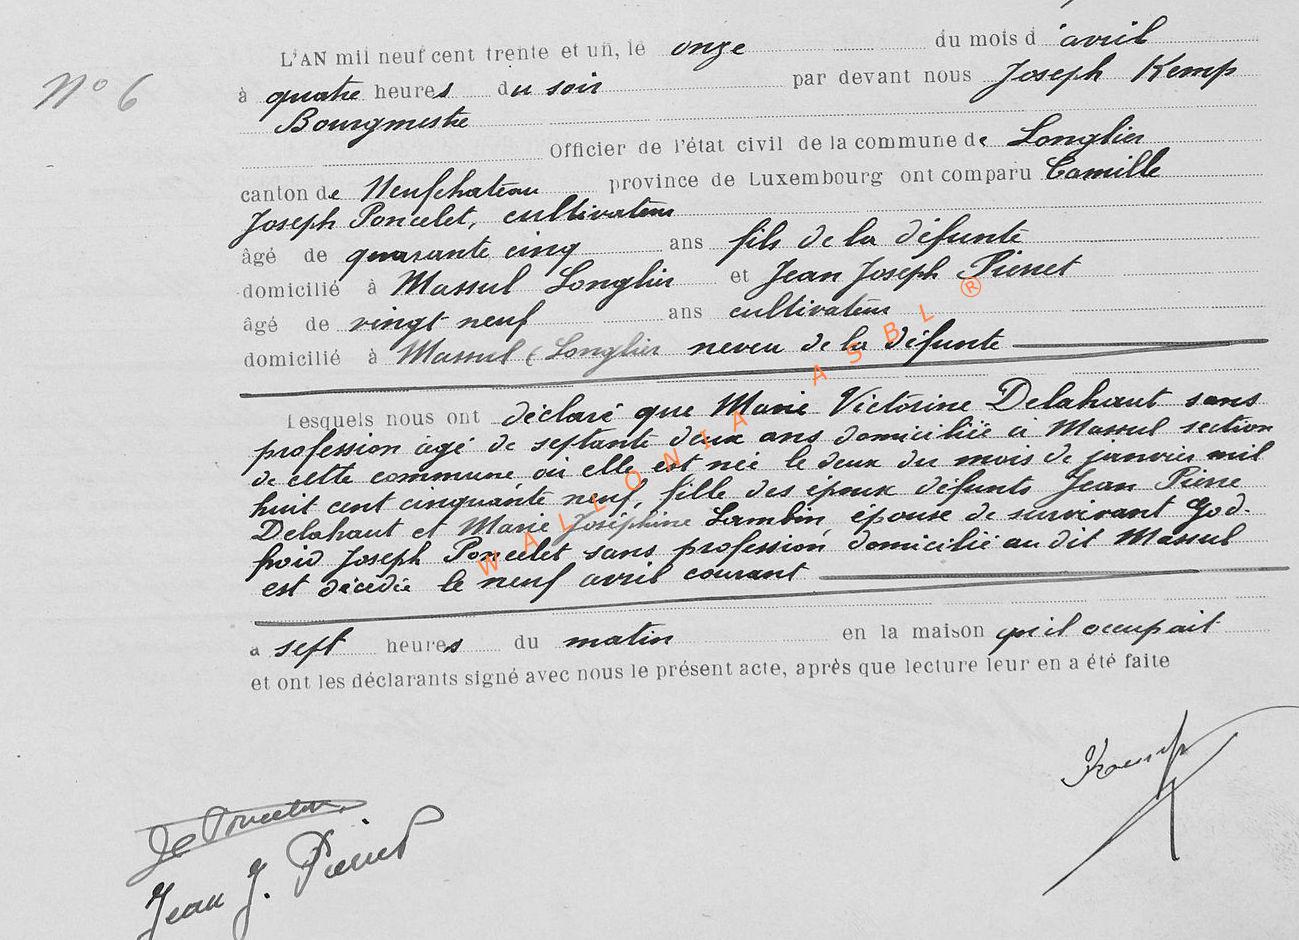 L'AN mil neuf cent trente et un, le onze du mois d'avril
N° 6
à quatre heures du soir par devant nous Joseph Kemp
Bourgmestre
Officier de l'état civil de la commune de Longlier
canton de Neufchateau province de Luxembourg ont comparu Camille
Joseph Poncelet, cultivateur
âgé de quarante cinq ans fils de la défunte
domicilié à Massul Longlier et Jean Joseph Pierret
âgé de vingt neuf ans cultivateur
domicilié à Massul (Longlier neveu de la défunte
Lesquels nous ont déclaré que Marie Victorine Delahaut sans
profession agé de septante deux ans domiciliée à Massul section
de cette commune où elle est née le deux du mois de janvier mil
huit cent cinquante neuf, fille des époux défunts Jean Pierre
Delahaut et Marie Joséphine Lambin, épouse de survivant God-
froid Joseph Poncelet sans profession domicilié au dit Massul
est décédée le neuf avril courant
à sept heures du matin en la maison qu'il occupait
et ont les déclarants signé avec nous le présent acte, après que lecture leur en a été faite
Kemp
Jc Poncelet
Jean J. Pierret
WALLONIA ASBL ®